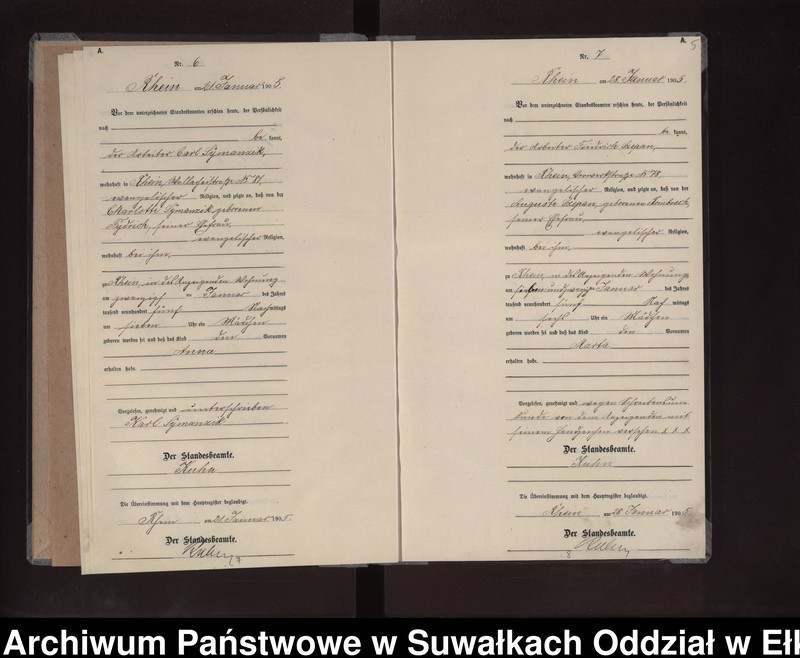 A.
Nr. 6
Rhein am 21 Januar 1905.
Vor dem unterzeichneten Standesbeamten erschien heute, der Persönlichkeit
nach
be kannt,
der Arbeiter Carl Symanzik,
wohnhaft in Rhein, № 71,
evangelischer Religion, und zeigte an, daß von der
Charlotte Symanzik geborenen
seiner Ehefrau,
evangelischer Religion,
wohnhaft bei ihm,
zu Rhein, in des Anzeigenden Wohnung
am zwanzigsten Januar des Jahres
tausend neunhundert fünf Nachmittags
um sieben Uhr ein Mädchen
geboren worden sei und daß das Kind den Vornamen
Anna
erhalten habe.
Vorgelesen, genehmigt und unterschrieben
Karl Symanzik
Der Standesbeamte.
Kuhn
Die Übereinstimmung mit dem Hauptregister beglaubigt.
Rhein am 21 Januar 1905.
Der Standesbeamte.
Kuhn
A.
5
Nr. 7
Rhein am 28 Januar 1905.
Vor dem unterzeichneten Standesbeamten erschien heute, der Persönlichkeit
nach
be kannt,
der Arbeiter Friedrich
wohnhaft in Rhein, № 78,
evangelischer Religion, und zeigte an, daß von der
Auguste geborenen
seiner Ehefrau,
evangelischer Religion,
wohnhaft bei ihm,
zu Rhein, in des Anzeigenden Wohnung
am siebenundzwanzigsten Januar des Jahres
tausend neunhundert fünf Nachmittags
um sechs Uhr ein Mädchen
geboren worden sei und daß das Kind den Vornamen
Marta
erhalten habe.
Vorgelesen, genehmigt und wegen Schreibensun-
kunde von dem Anzeigenden mit
seinem Handzeichen versehen x x x
Der Standesbeamte.
Kuhn
Die Übereinstimmung mit dem Hauptregister beglaubigt.
Rhein am 28 Januar 1905.
Der Standesbeamte.
Kuhn
8
Archiwum Państwowe w Suwałkach Oddział w Ełk